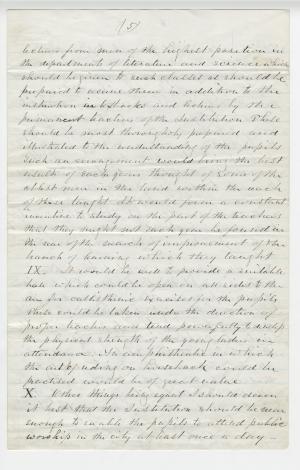 (5)
lectures from men of the highest position in
the departments of literature and science which
should be given to such classes as should be
prepared to receive them in addition to the
instruction in Books and lectures by the
permanent teachers of the Institution These
should be most thoroughly prepared and
illustrated to the understanding of the pupils
Such an arrangement would bring the best
result of each years thought of some of the
ablest men in the land within the reach
of those taught It would form a constant
incentive to study on the part of the teachers
that they might not each year be found in
the rear of the march of improvement of the
branch of learning which they taught
IX. It would be well to provide a suitable
hall which could be open on all sides to the
air for calisthenic exercises for the pupils
These could be taken under the direction of
proper teachers and tend powerfully to develop
the physical strength of the young ladies in
attendance. An ampitheatre in which
the art of riding on horseback could be
practised would be of great value
X. Other things being equal I should deem
it best that the Institution should be near
enough to enable the pupils to attend public
worship in the city at least once a day—